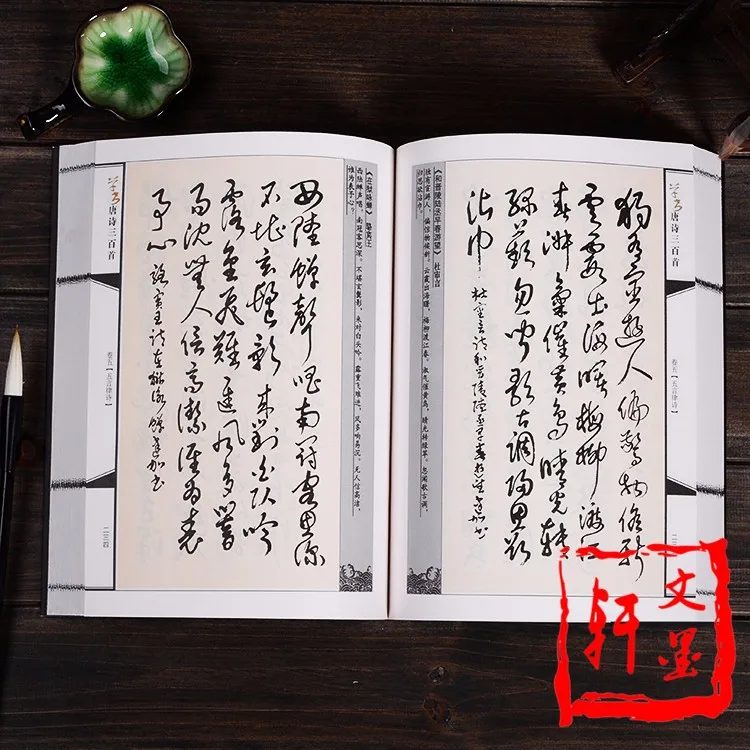 唐诗三百首
卷五【五言律诗】
獨有宦遊人偏驚物候新
雲霞出海曙梅柳渡江
春淑氣催黄鳥晴光轉
綠蘋忽聞歌古調歸思欲
沾巾
杜審言詩和晉陵陸丞早春游望
《和晋陵陆丞早春游望》 杜审言
独有宦游人，偏惊物候新。云霞出海曙，梅柳渡江春。淑气催黄鸟，晴光转绿苹。忽闻歌古调，
归思欲沾巾。
《在狱咏蝉》 骆宾王
西陆蝉声唱，南冠客思深。不堪玄鬓影，来对白头吟。露重飞难进，风多响易沉。无人信高洁，
谁为表予心？
西陸蟬聲唱南冠客思深
不堪玄鬢影来對白頭吟
露重飛難進風多響
易沈無人信高潔誰為表
予心
駱賓王詩在獄咏蟬
唐诗三百首
卷五【五言律诗】
二三四
文墨
轩